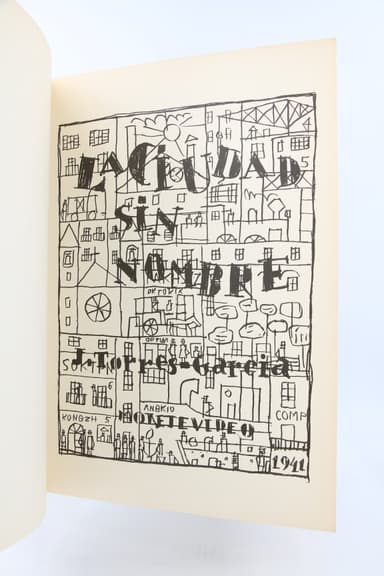 4
LA CIUDAD
5
SIN
NOMBRE
J. Torres-García
6
ANBKIO
KONGZH 5
COMP
MONTEVIDEO
1941